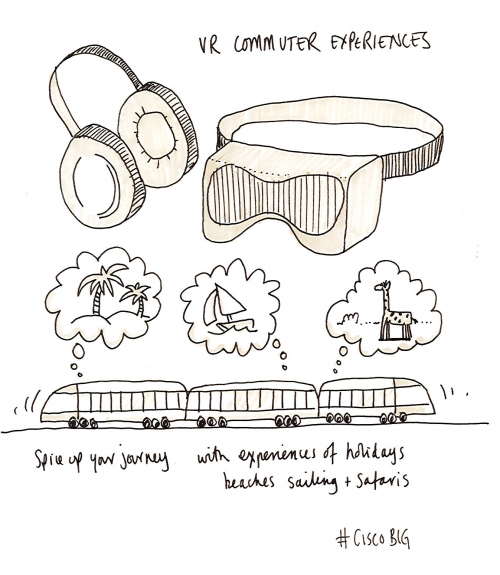 VR COMMUTER EXPERIENCES
Spice up your journey with experiences of holidays
beaches sailing + Safaris
#CISCO BIG